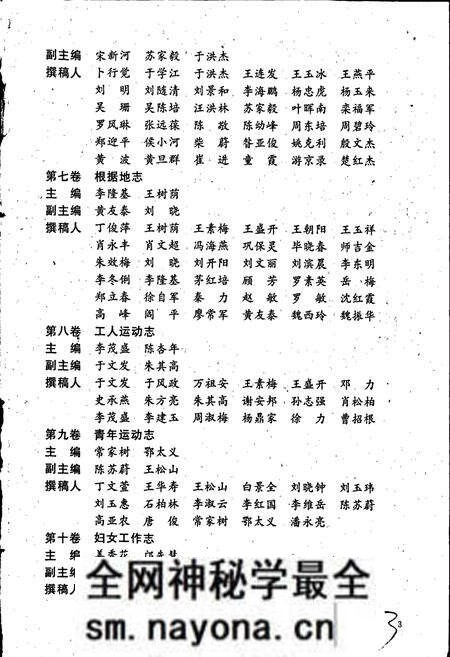 副主编 宋新河 苏家毅 于洪杰
撰稿人 卜行觉 于学江 于洪杰 王连发 王玉冰 王燕平
刘明 刘随清 刘景和 李海鹏 杨忠虎 杨玉来
吴珊 吴陈培 汪洪林 苏家毅 叶晖南 栾福军
罗风琳 张远葆 陈敢 陈幼峰 周东培 周碧玲
郑迎平 侯小河 柴蔚 昝亚俊 姚克利 殷文杰
黄波 黄旦群 崔进 童霞 游京录 楚红杰
第七卷 根据地志
主编 李隆基 王树荫
副主编 黄友泰 刘晓
撰稿人 丁俊萍 王树荫 王素梅 王盛开 王朝阳 王玉祥
肖永丰 肖文超 冯海燕 巩保灵 毕晓春 师吉金
朱效梅 刘晓 刘开阳 刘文丽 刘滨晨 李东明
李冬俐 李隆基 苏红培 顾芳 罗素英 岳梅
郑立春 徐自军 秦力 赵敏 罗敏 沈红霞
高峰 阎平 廖常军 黄友泰 魏西玲 魏振华
第八卷 工人运动志
主编 李茂盛 陈杏年
副主编 于文发 朱其高
撰稿人 于文发 于风政 万祖安 王素梅 王盛开 邓力
史承燕 朱方亮 朱其高 谢安邦 孙志强 肖松柏
李茂盛 李建玉 周淑梅 杨鼎家 徐力 曹招根
第九卷 青年运动志
主编 常家树 鄂太义
副主编 陈苏蔚 王松山
撰稿人 丁文萱 王华寿 王松山 白景全 刘晓钟 刘玉玮
刘玉惠 石柏林 李淑云 李红国 李维岳 陈苏蔚
高亚农 唐俊 常家树 鄂太义 潘永亮
第十卷 妇女工作志
主编
副主编
撰稿人
全网神秘学最全
sm.nayona.cn
3